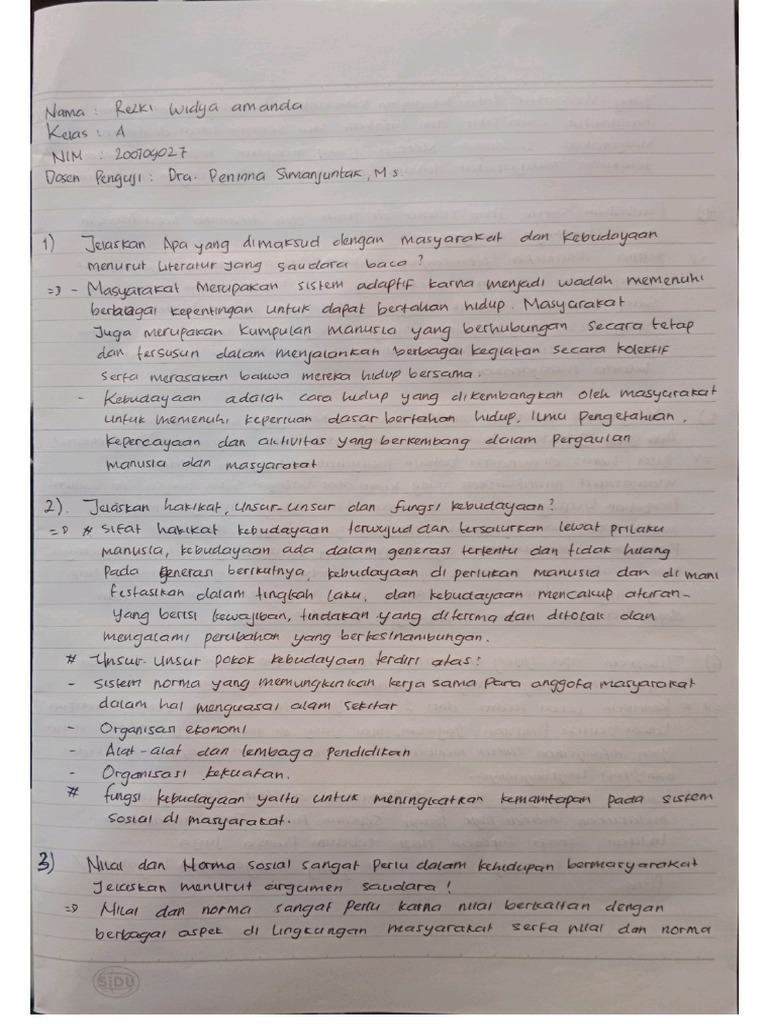 Nama : Rezki Widya amanda
Kelas : A
NIM : 200109027
Dosen Penguji : Dra. Peninna Simanjuntak, M s.
1) Jelaskan Apa yang dimaksud dengan masyarakat dan Kebudayaan
menurut Literatur yang saudara baca ?
=> - Masyarakat Merupakan sistem adaptif karna menjadi wadah memenuhi
berbagai kepentingan untuk dapat bertahan hidup. Masyarakat
Juga merupakan kumpulan manusia yang berhubungan secara tetap
dan tersusun dalam menjalankan berbagai kegiatan secara kolektif
serta merasakan bahwa mereka hidup bersama.
- Kebudayaan adalah cara hidup yang dikembangkan oleh masyarakat
untuk memenuhi keperluan dasar bertahan hidup, Ilmu Pengetahuan,
kepercayaan dan aktivitas yang berkembang dalam Pergaulan
manusia dan masyarakat
2). Jelaskan hakikat, Unsur-unsur dan fungsi kebudayaan?
=> * Sifat hakikat kebudayaan terwujud dan tersalurkan lewat prilaku
manusia, kebudayaan ada dalam generasi tertentu dan tidak huang
Pada generasi berikutnya, kebudayaan di perlukan manusia dan di mani
festasikan dalam tingkah laku, dan kebudayaan mencakup aturan-
yang berisi kewajiban, tindakan yang diterima dan ditolak dan
mengalami perubahan yang berkesinambungan.
* Unsur-Unsur pokok kebudayaan terdiri atas :
- Sistem norma yang memungkinkan kerja sama para anggota masyarakat
dalam hal menguasai alam sekitar
- Organisasi ekonomi
- Alat-alat dan lembaga pendidikan
- Organisasi kekuatan.
* fungsi kebudayaan yaitu untuk meningkatkan kemantapan pada sistem
sosial di masyarakat.
3) Nilai dan Norma sosial sangat Perlu dalam kehidupan bermasyarakat
Jelaskan menurut argumen saudara !
=> Nilai dan norma sangat Perlu karna nilai berkaitan dengan
berbagai aspek di lingkungan masyarakat serta nilai dan norma
SiDU